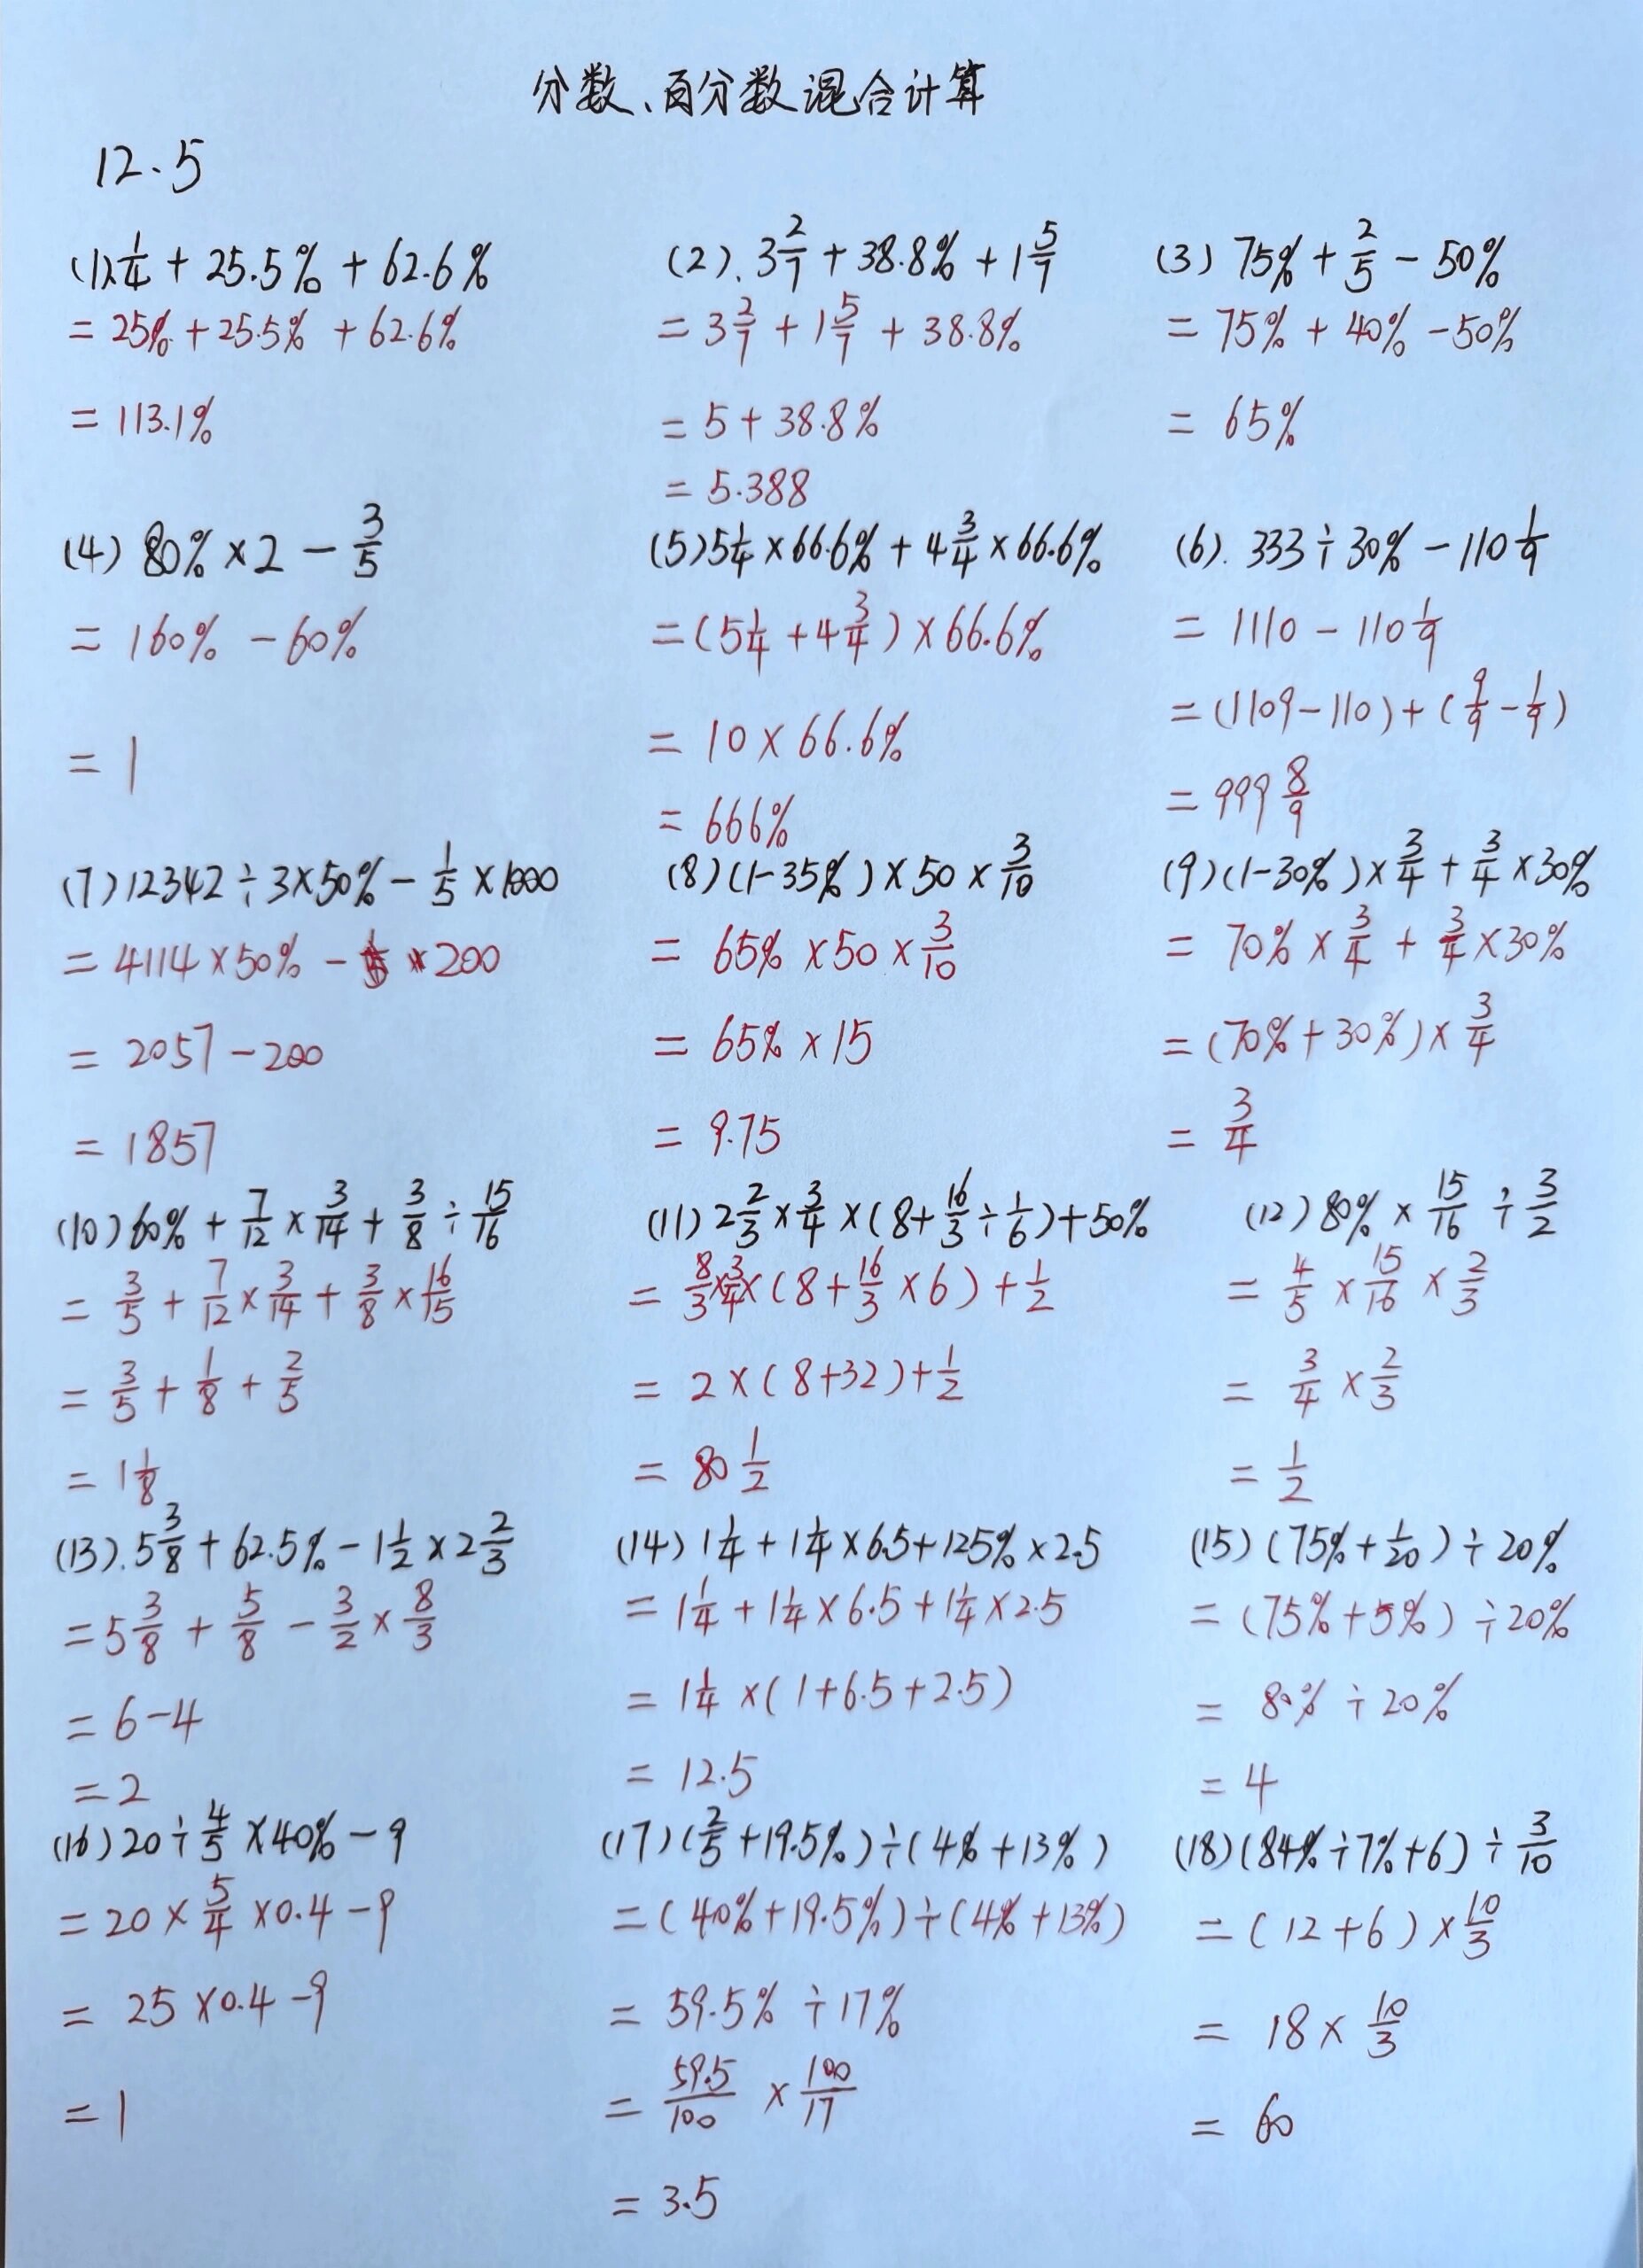 分数、百分数混合计算
12.5
(1) 1/4 + 25.5% + 62.6%
= 25% + 25.5% + 62.6%
= 113.1%
(2). 3 2/7 + 38.8% + 1 5/7
= 3 2/7 + 1 5/7 + 38.8%
= 5 + 38.8%
= 5.388
(3) 75% + 2/5 - 50%
= 75% + 40% - 50%
= 65%
(4) 80% × 2 - 3/5
= 160% - 60%
= 1
(5) 5 1/4 × 66.6% + 4 3/4 × 66.6%
= (5 1/4 + 4 3/4) × 66.6%
= 10 × 66.6%
= 666%
(6). 333 ÷ 30% - 110 1/9
= 1110 - 110 1/9
= (1109 - 110) + (9/9 - 1/9)
= 999 8/9
(7) 12342 ÷ 3 × 50% - 1/5 × 1000
= 4114 × 50% - 200
= 2057 - 200
= 1857
(8) (1 - 35%) × 50 × 3/10
= 65% × 50 × 3/10
= 65% × 15
= 9.75
(9) (1 - 30%) × 3/4 + 3/4 × 30%
= 70% × 3/4 + 3/4 × 30%
= (70% + 30%) × 3/4
= 3/4
(10) 60% + 7/12 × 3/14 + 3/8 ÷ 15/16
= 3/5 + 7/12 × 3/14 + 3/8 × 16/15
= 3/5 + 1/8 + 2/5
= 1 1/8
(11) 2 2/3 × 3/4 × (8 + 16/3 ÷ 1/6) + 50%
= 8/3 × 3/4 × (8 + 16/3 × 6) + 1/2
= 2 × (8 + 32) + 1/2
= 80 1/2
(12) 80% × 15/16 ÷ 3/2
= 4/5 × 15/16 × 2/3
= 3/4 × 2/3
= 1/2
(13). 5 3/8 + 62.5% - 1 1/2 × 2 2/3
= 5 3/8 + 5/8 - 3/2 × 8/3
= 6 - 4
= 2
(14) 1 1/4 + 1 1/4 × 6.5 + 125% × 2.5
= 1 1/4 + 1 1/4 × 6.5 + 1 1/4 × 2.5
= 1 1/4 × (1 + 6.5 + 2.5)
= 12.5
(15) (75% + 1/20) ÷ 20%
= (75% + 5%) ÷ 20%
= 80% ÷ 20%
= 4
(16) 20 ÷ 4/5 × 40% - 9
= 20 × 5/4 × 0.4 - 9
= 25 × 0.4 - 9
= 1
(17) (2/5 + 19.5%) ÷ (4% + 13%)
= (40% + 19.5%) ÷ (4% + 13%)
= 59.5% ÷ 17%
= 59.5/100 × 100/17
= 3.5
(18) (84% ÷ 7% + 6) ÷ 3/10
= (12 + 6) × 10/3
= 18 × 10/3
= 60